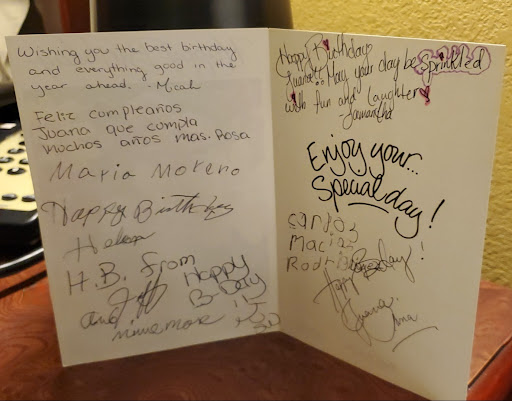 Wishing you the best birthday
and everything good in the
year ahead. - Micah
Feliz cumpleaños
Juana que cumpla
muchos años mas. Rosa
Maria Moreno
Happy Birthday
Helen
H.B. from
Jeff
and
Happy
B-Day
Happy Birthday
Juanita! May your day be Sprinkled
with fun and laughter
Samantha
Enjoy your...
Special day!
Carlos
Macias
Happy
Juana.